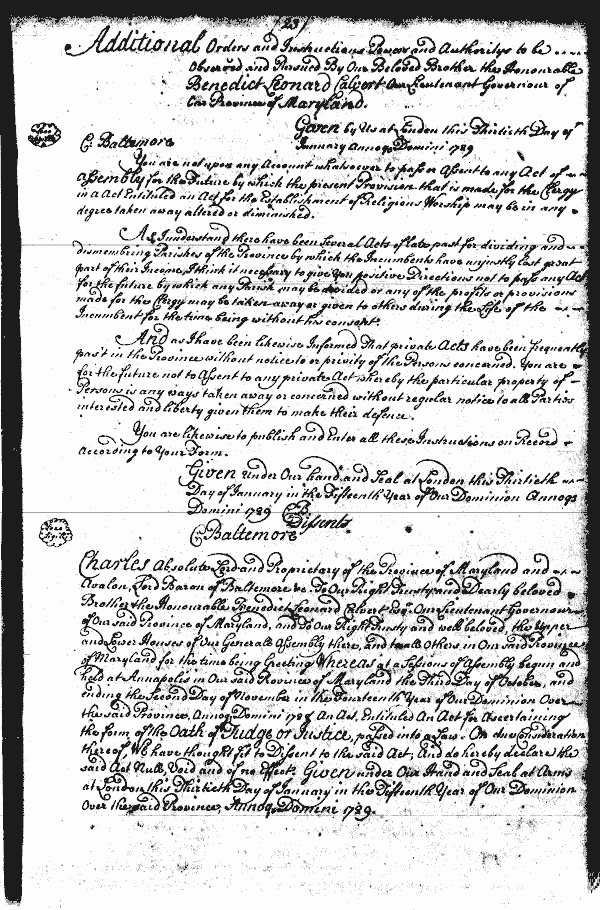 /23/
Additional Orders and Instructions Powers and Authoritys to be
Observed and Pursued By Our Beloved Brother the Honourable
Benedict Leonard Calvert Our Lieutenant Governour of
Our Province of Maryland.
Given by Us at London this Thirtieth Day of
January Annoq Domini 1729
C: Baltemore
You are not upon any Account whatsoever to pass or Assent to any Act of
Assembly for the Future by which the present Provision that is made for the Clergy
in a Act Entituled an Act for the Establishment of Religious Worship may be in any
degree taken away altered or diminished.
As I understand there have been several Acts of late past for dividing and
dismembring Parishes of the Province by which the Incumbents have unjustly lost great
part of their Income, I think it necessary to give You positive Directions not to pass any Act
for the future by which any Parish may be divided or any of the profits or provisions
made for the Clergy may be taken away or given to others during the Life of the
Incumbent for the time being without his consent.
And as I have been likewise Informed That private Acts have been frequently
past in the Province without notice to or privity of the Persons concerned. You are
for the future not to Assent to any private Act whereby the particular property of
Persons is any ways taken away or concerned without regular notice to all Partys
interested and liberty given them to make their defence.
You are likewise to publish and Enter all these Instructions on Record
According to Your Form.
Given under Our hand and Seal at London this Thirtieth
Day of January in the Fifteenth Year of Our Dominion Annoq
Domini 1729 CB
Dissents
C Baltemore
Charles Absolute Lord and Proprietary of the Province of Maryland and
Avalon, Lord Baron of Baltemore &c. To Our Right Trusty and Dearly beloved
Brother the Honourable Benedict Leonard Calvert Esqr. Our Lieutenant Governour
of Our said Province of Maryland, and To Our Right Trusty and well beloved the Upper
and Lower Houses of Our Generall Assembly there, and to all Others in Our said Province
of Maryland for the time being Greeting Whereas at a Sessions of Assembly begun and
held at Annapolis in Our said Province of Maryland the Third Day of October, and
ending the Second Day of November in the Fourteenth Year of Our Dominion Over
the said Province, Annoq Domini 1728 An Act, Entituled An Act for Ascertaining
the form of the Oath of Judge or Justice, passed into a Law. On due consideration
thereof, We have thought fit to Dissent to the said Act, And do hereby declare the
said Act Null, Void and of no Effect. Given under Our Hand and Seal at Arms
at London this Thirtieth Day of January in the Fifteenth Year of Our Dominion
Over the said Province, Annoq Domini 1729.